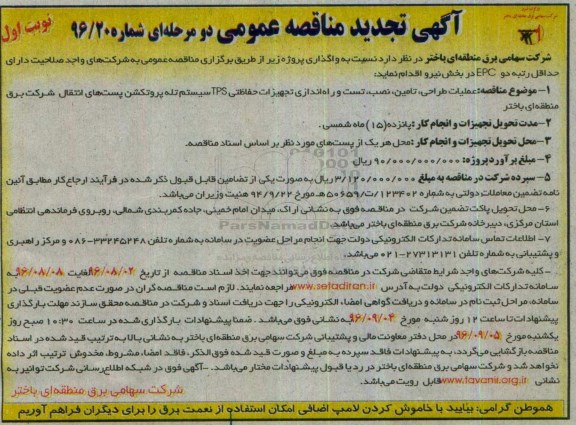 نوبت اول
آگهی تجدید مناقصه عمومی دو مرحله‌ای شماره ۹۶/۲۰
شرکت سهامی برق منطقه‌ای باختر در نظر دارد نسبت به واگذاری پروژه زیر از طریق برگزاری مناقصه عمومی به شرکت‌های واجد صلاحیت دارای
حداقل رتبه دو EPC در بخش نیرو اقدام نماید:
۱- موضوع مناقصه: عملیات طراحی، تامین، نصب، تست و راه‌اندازی تجهیزات حفاظتی TPS سیستم تله پروتکشن پست‌های انتقال شرکت برق
منطقه‌ای باختر
۲- مدت تحویل تجهیزات و انجام کار: پانزده (۱۵) ماه شمسی.
۳- محل تحویل تجهیزات و انجام کار: محل هر یک از پست‌های مورد نظر بر اساس اسناد مناقصه.
۴- مبلغ برآورد پروژه: ۹۰/۰۰۰/۰۰۰/۰۰۰ ریال.
۵- سپرده شرکت در مناقصه به مبلغ ۳/۱۲۰/۰۰۰/۰۰۰ ریال به صورت یکی از تضامین قابل قبول ذکر شده در فرآیند ارجاع کار مطابق آئین
نامه تضمین معاملات دولتی به شماره ۱۲۳۴۰۲/ت۵۰۶۵۹هـ مورخ ۹۴/۹/۲۲ هیئت وزیران می‌باشد.
۶- محل تحویل پاکت تضمین شرکت در مناقصه فوق به نشانی اراک، میدان امام خمینی، جاده کمربندی شمالی، روبروی فرماندهی انتظامی
استان مرکزی، دبیرخانه شرکت برق منطقه‌ای باختر می‌باشد.
۷- اطلاعات تماس سامانه تدارکات الکترونیکی دولت جهت انجام مراحل عضویت در سامانه به شماره تلفن ۳۳۲۴۵۲۴۸-۰۸۶ و مرکز راهبری
و پشتیبانی به شماره تلفن ۲۷۳۱۳۱۳۱-۰۲۱ می‌باشد.
- کلیه شرکت‌های واجد شرایط متقاضی شرکت در مناقصه فوق می‌توانند جهت اخذ اسناد مناقصه از تاریخ ۹۶/۰۸/۰۲ لغایت ۹۶/۰۸/۰۸ به
سامانه تدارکات الکترونیکی دولت به آدرس www.setadiran.ir مراجعه نمایند. لازم است مناقصه‌گران در صورت عدم عضویت قبلی در
سامانه، مراحل ثبت نام در سامانه و دریافت گواهی امضاء الکترونیکی را جهت دریافت اسناد و شرکت در مناقصه محقق سازند مهلت بارگذاری
پیشنهادات تا ساعت ۱۲ روز شنبه مورخ ۹۶/۰۹/۰۴ به نشانی فوق می‌باشد. ضمنا پیشنهادات بارگذاری شده در ساعت ۱۰:۳۰ صبح روز
یکشنبه مورخ ۹۶/۰۹/۰۵ در محل دفتر معاونت مالی و پشتیبانی شرکت سهامی برق منطقه‌ای باختر به نشانی بالا به ترتیب قید شده در اسناد
مناقصه بازگشایی می‌گردد، به پیشنهادات فاقد سپرده به مبلغ و صورت قید شده فوق الذکر، فاقد امضا، مشروط، مخدوش ترتیب اثر داده
نخواهد شد و شرکت سهامی برق منطقه‌ای باختر در رد یا قبول پیشنهادات مختار می‌باشد. - آگهی فوق در شبکه اطلاع‌رسانی شرکت توانیر به
نشانی www.tavanir.org.ir قابل رویت می‌باشد.
شرکت سهامی برق منطقه‌ای باختر
هموطن گرامی: بیایید با خاموش کردن لامپ اضافی امکان استفاده از نعمت برق را برای دیگران فراهم آوریم